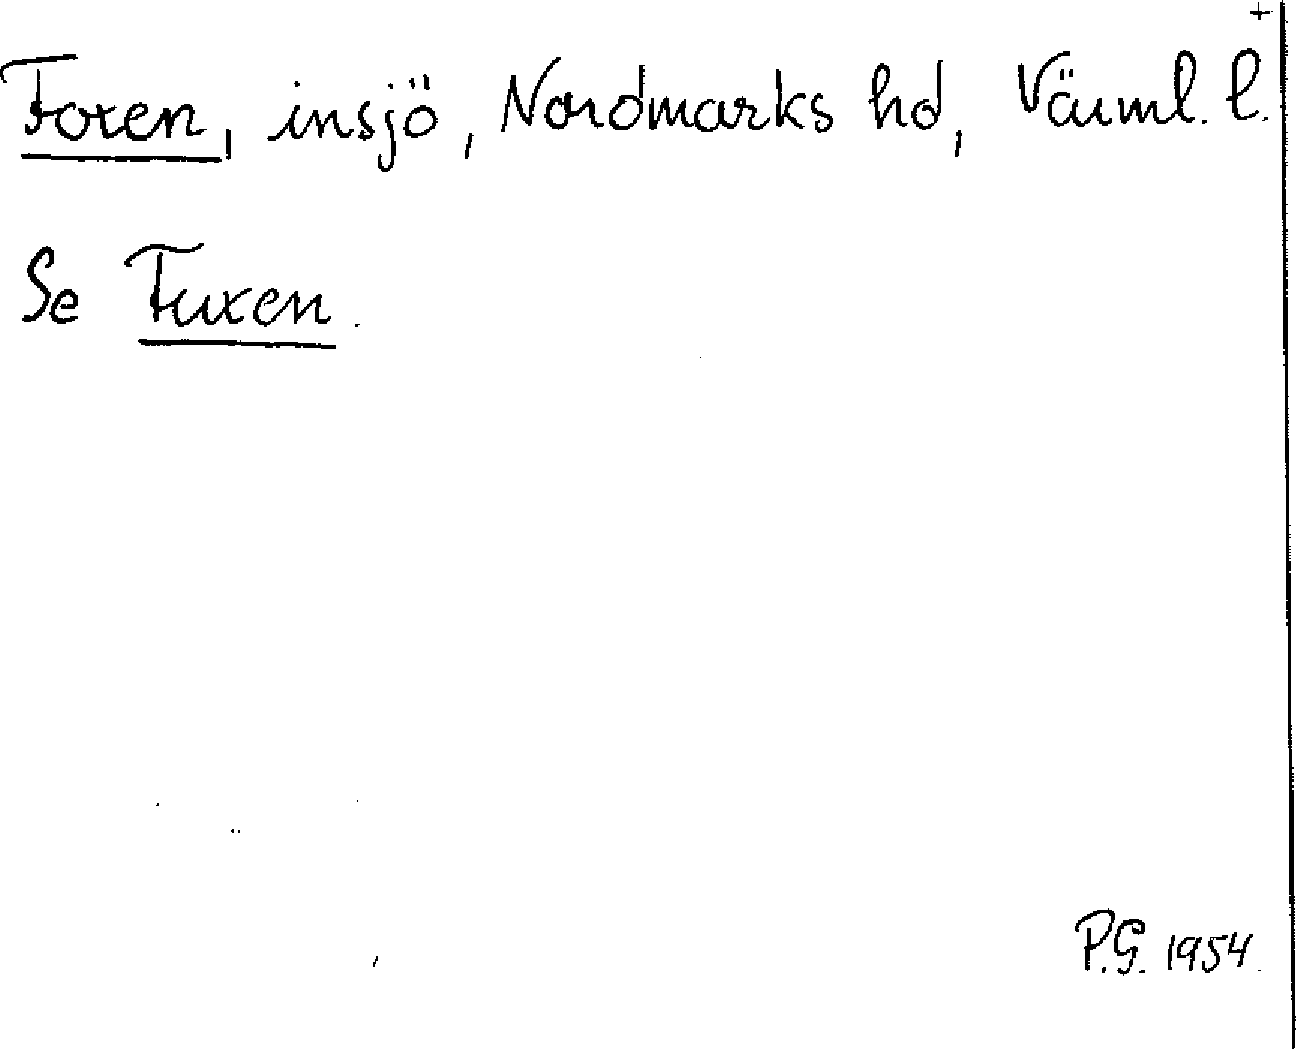 +
Foxen, insjö, Nordmarks hd, Värml. l.
Se Fuxen.
P.G. 1954.